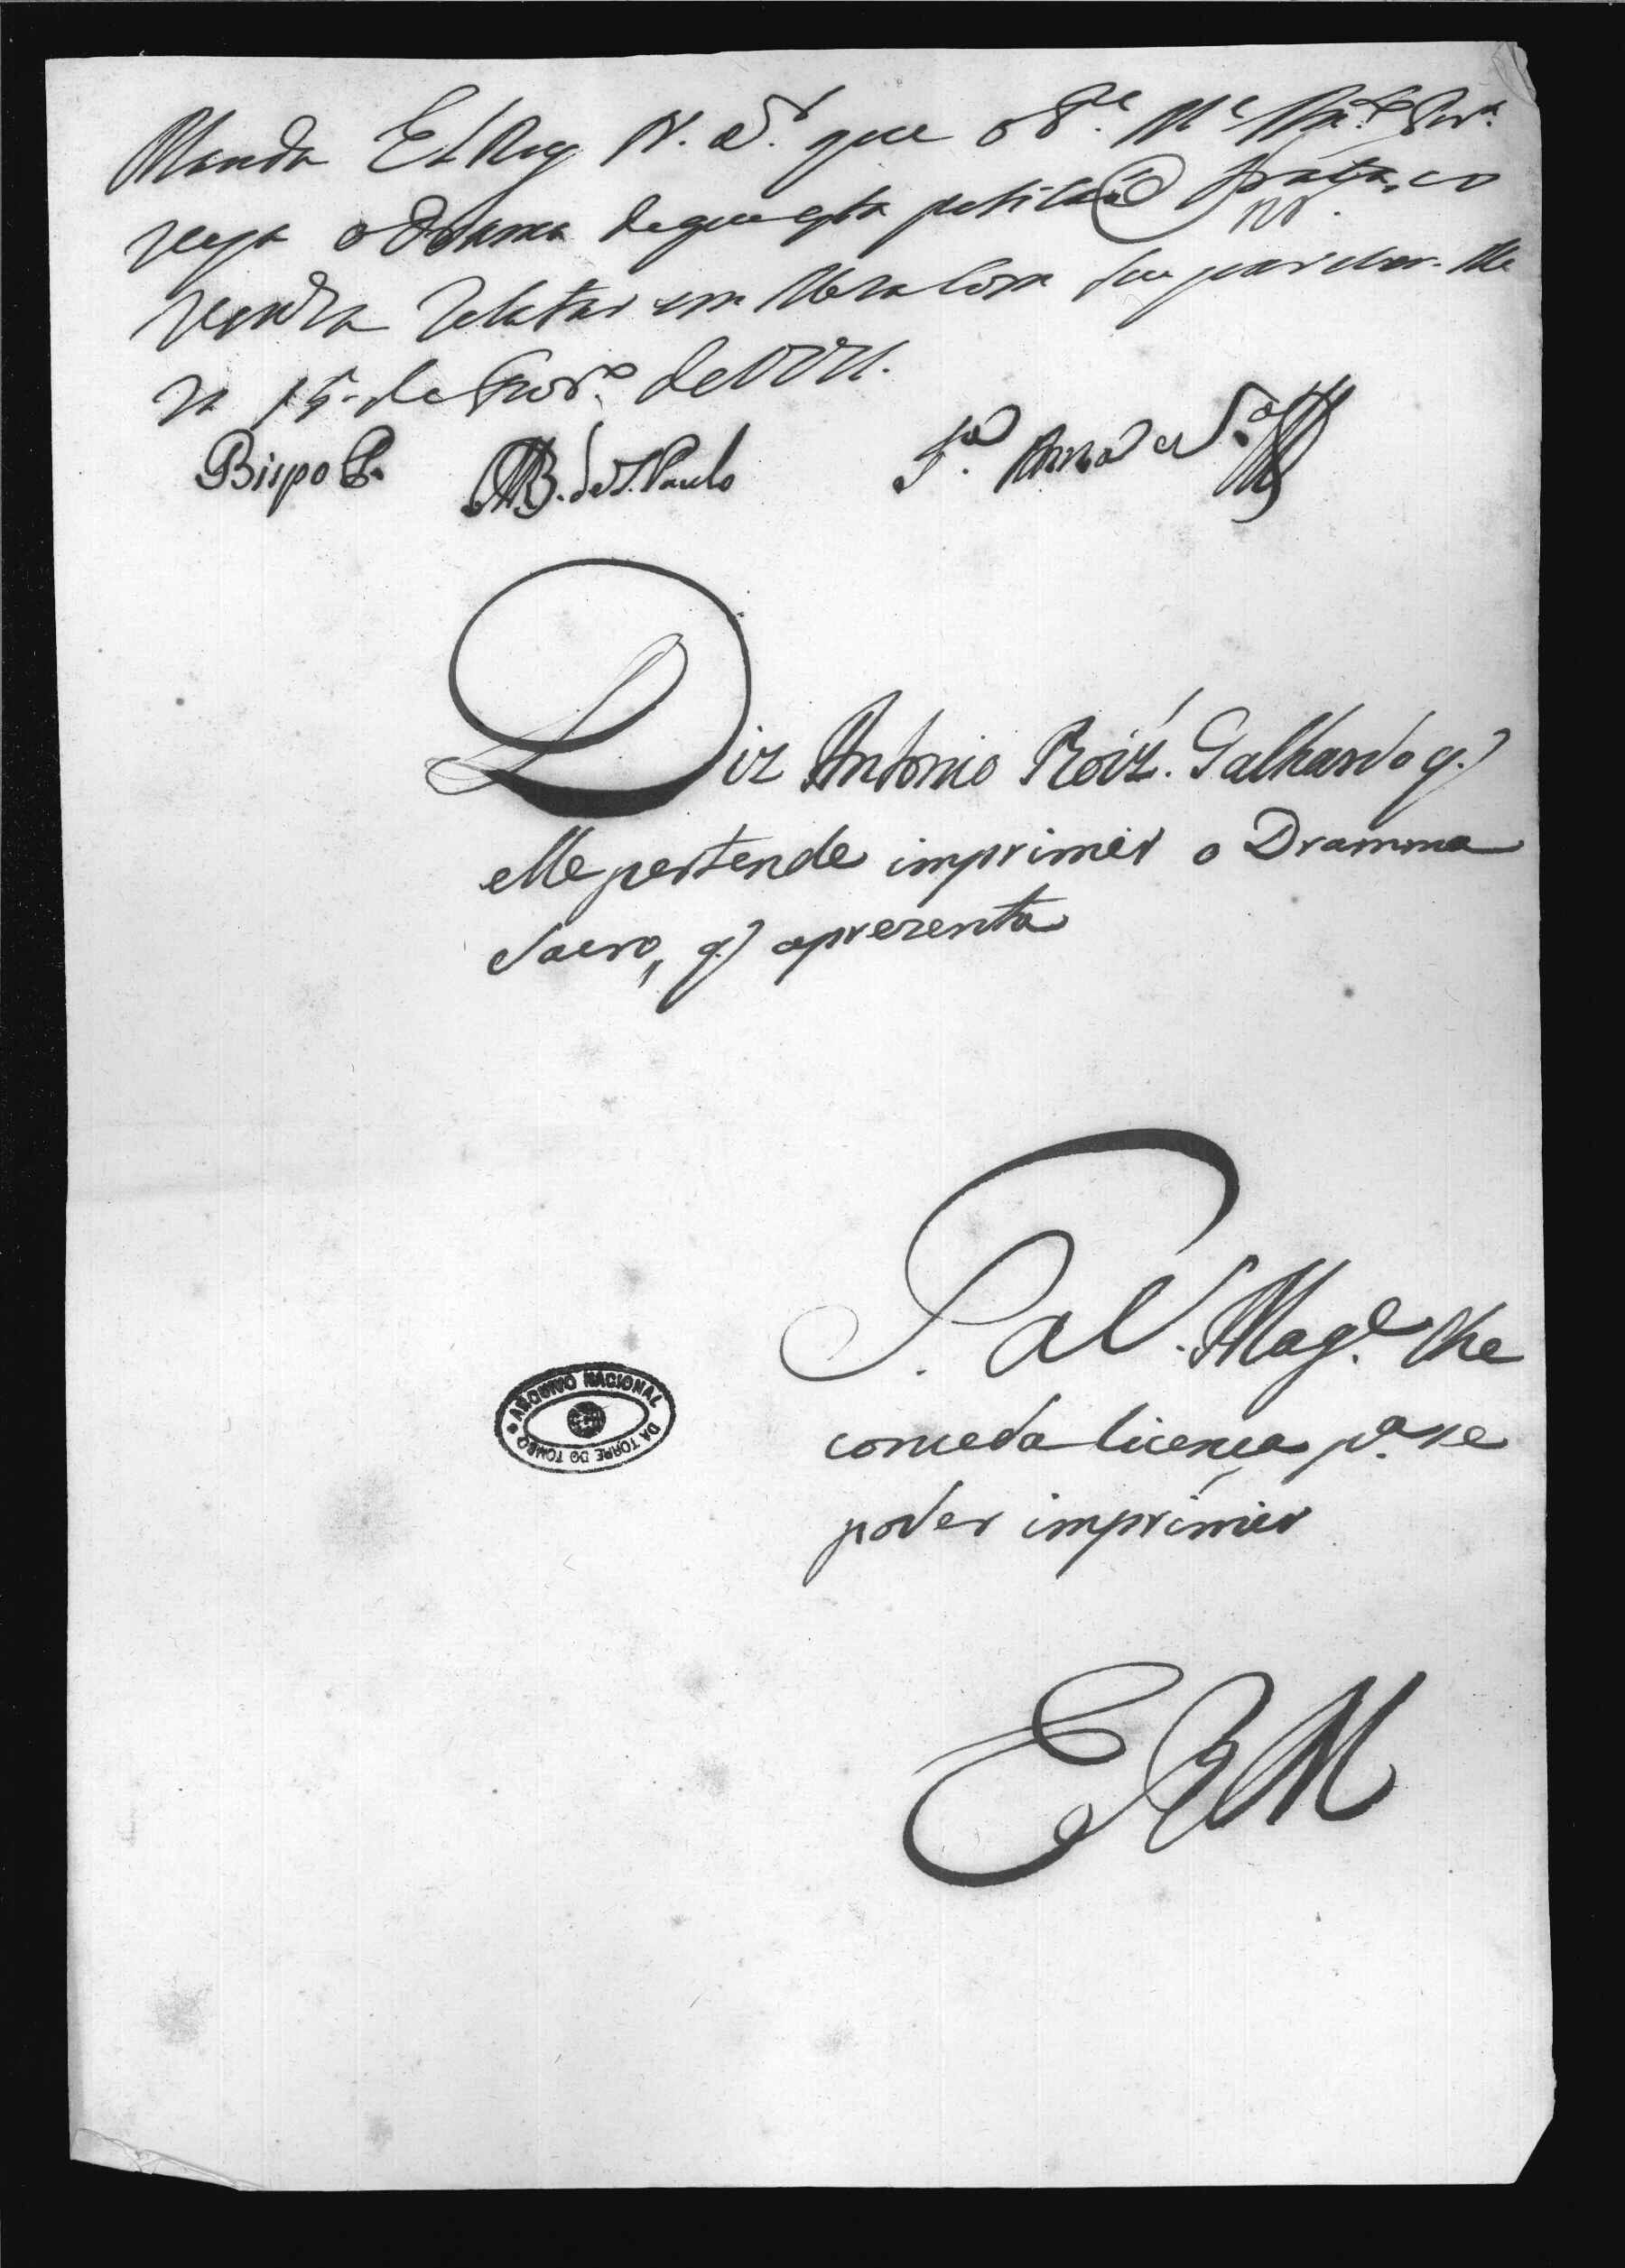 Manda El Rey N. S.r que o
veja o Drama de que esta petição trata, e o
venha relatar em Meza com seu parecer. Me
za 15 de de 1771.
Bispo P. de S. Paulo
Diz Antonio Roiz. Galhardo q.
elle pertende imprimir o Dramma
Sacro, q. aprezenta
P. a V. Mag.e lhe
conceda licença p.a se
poder imprimir
ERM
ARQUIVO NACIONAL DA TORRE DO TOMBO